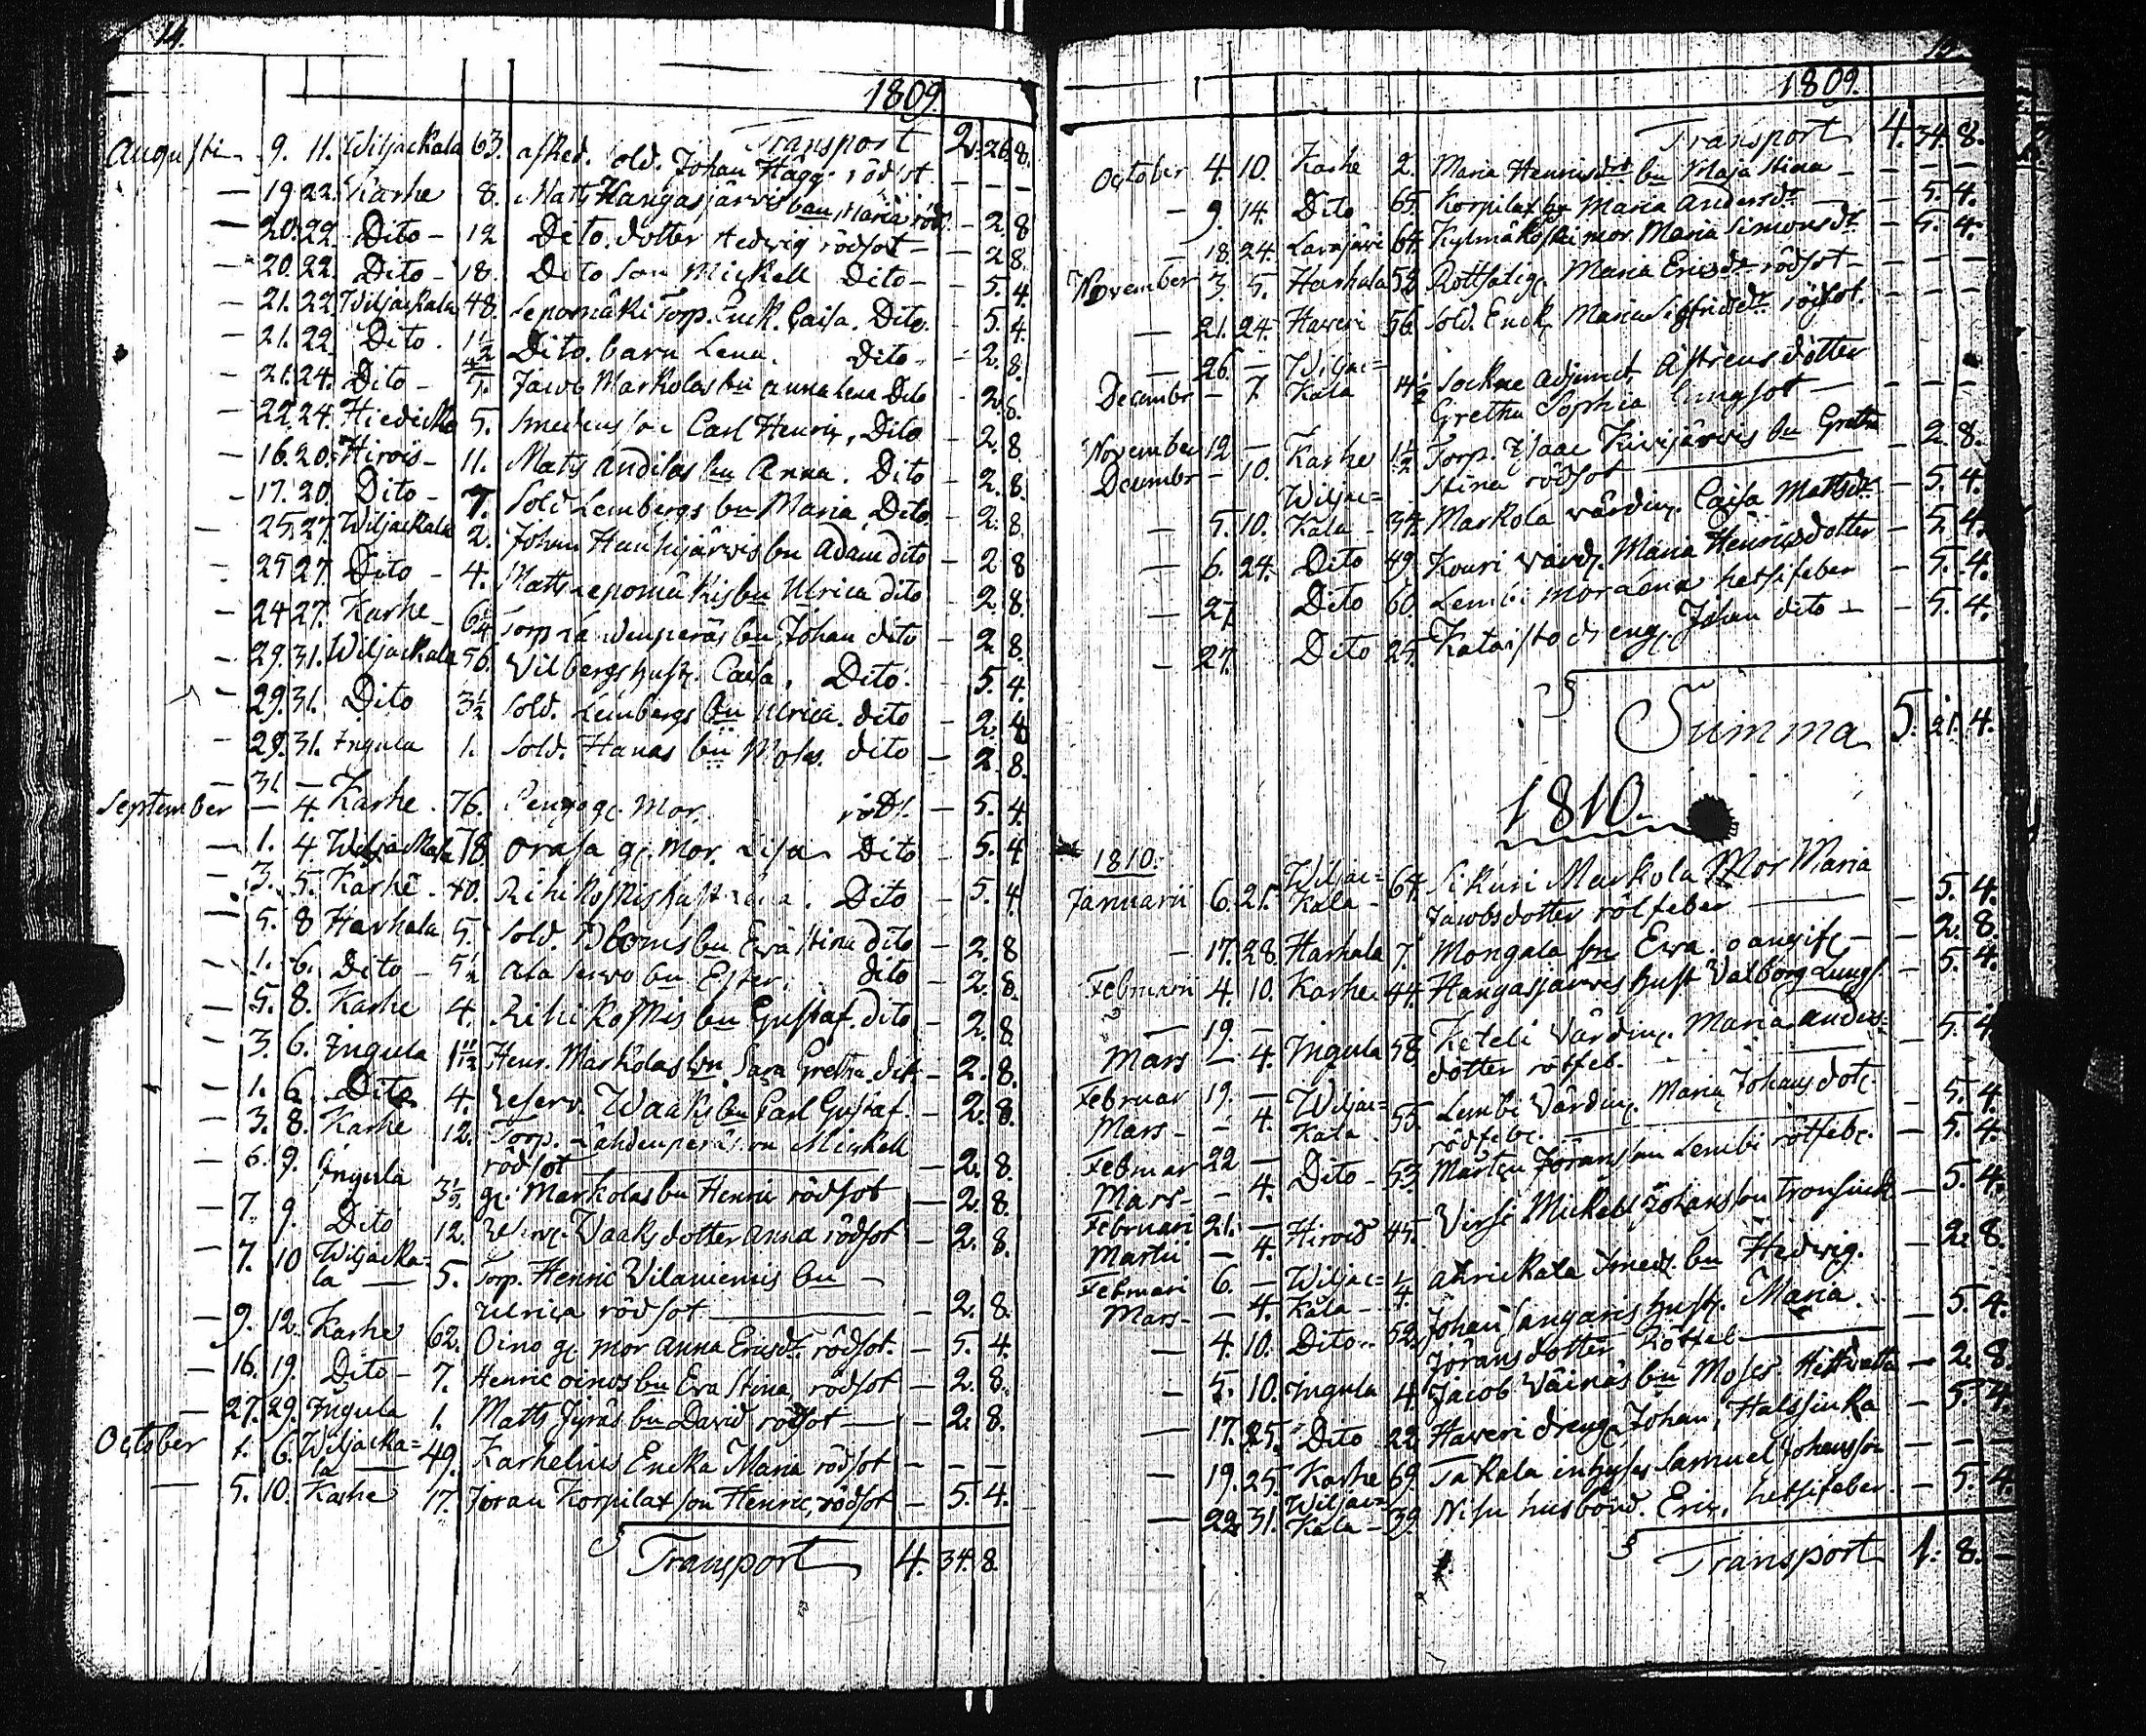 14.
1809
Transport 2. 26. 8.
Augusti 9. 11. Wiljackala 63. afsked. sold. Johan Hägg rödsot - - -
- 19 22. Karhe 8. Matts Hangasjärvis barn Maria röds. - 2. 8
- 20. 22. Dito - 12 Dito dotter Hedvig rödsot - 2 8.
- 20. 22. Dito - 18. Dito Son Mickell Dito - 5. 4.
- 21. 22. Wiljackala 48. Lepomäki Torp. Enck. Caisa. Dito. - 5. 4
- 21. 22. Dito. 1 1/2 Dito. barn Lena. Dito. - 2. 8.
- 21. 24. Dito - 7. Jacob Markolas bn Anna Lena Dito - 2. 8.
- 22. 24. Hiedicko 5. Smedens son Carl Henric, Dito - 2. 8.
- 16. 20. Hirois - 11. Matts Andilas bn Anna. Dito - 2. 8.
- 17. 20. Dito - 7. Sold Lembergs bn Maria Dito. - 2. 8.
- 25. 27. Wiljackala 2. Johan Hauhijärvis bn Adam dito - 2 8
- 25 27. Dito - 4. Matts Lepomäkis bn Ulrica dito - 2. 8.
- 24 27. Karhe - 6 1/4 Torp Lahdenperäs bn Johan dito - 2 8.
- 29. 31. Wiljackala 56. Vilbergs hustr. Caisa. Dito. - 5. 4.
- 29. 31. Dito 3 1/2 Sold. Lembergs bn Ulrica. dito - 2. 8
- 29. 31. Ingula 1. Sold. Hanas bn Moses. dito - 2. 8.
- 31 -
September - 4. Karhe. 76. gl. Mor. röds. - 5. 4.
- 1. 4. Wiljackala 78 Orasa gl. Mor. Lisa Dito - 5. 4
- 3. 5. Karhe - 40. Rihikoskis hustr. Dito - 5. 4
- 5. 8 Harhala 5. Sold. Bloms bn Eva Stina dito - 2. 8
- 1. 6. Dito - 5 1/2 Ala Servo bn Ester. dito 2. 8.
- 5. 8. Karhe 4. Rihikoskis bn Gustaf. dito - 2. 8
- 3. 6. Ingula 1 11/12 Henr. Markolas bn Sara Gretha. dito - 2. 8.
- 1. 6. Dito 4. Reserv. Waaks bn Carl Gustaf. - 2. 8.
- 3. 8. Karhe 12. Torp. Lahdenperäs son Mickell
rödsot - 2. 8.
- 6. 9. Ingula 3 1/2 gl. Markolas bn Henric rödsot - 2. 8.
- 7. 9. Dito 12. Waaks dotter Anna rödsot - 2. 8.
- 7. 10 Wiljacka=
la - 5. Torp. Henric Vilaniemis bn -
Ulrica rödsot - 2. 8.
- 9. 12. Karhe 62. Oino gl. mor Anna Ericsdr. rödsot. - 5. 4.
- 16. 19. Dito - 7. Henric Oinos bn Eva Stina, rödsot - 2. 8.
- 27. 29. Ingula 1. Matts Jyräs bn David rödsot - 2. 8.
October 1. 6. Wiljacka=
la - 49. Karhelius Encka Maria rödsot - - -
- 5. 10. Karhe 17. Jöran Korpilax son Henric, rödsot - 5. 4.
Transport 4. 34. 8.
15.
1809.
Transport 4. 34. 8.
October 4. 10. Karhe 2. Maria Henricsdrs bn Maja Stina - - -
- 9. 14. Dito 65. Korpilax hu Maria Andersdr. - 5. 4.
- 18. 24. Lavajärvi 64. Kylmäkoski mor. Maria Simonsdr. - 5. 4.
November 3. 5. Harhala 58. Rottfatig. Maria Ericsdr. rödsot - - -
- 21. 24. Haveri 56. Sold. Enck. Maria Sigfridsdr. rödsot. - - -
- 26. - Wiljac=
Decembr - 7. Kala 4 1/2 Sockne Adjunct. Aströms dotter
Gretha Sophia lungsot - - -
November 12 - Karhe 1 1/2 Torp. Isaac Kivijärvis bn Gretha
Decembr - 10. Stina rödsot - 2. 8.
Wiljac=
- 5. 10. Kala - 34. Markola värdin. Caisa Mattsdr. - 5. 4.
- 6. 24. Dito 49. Kouri värd. Maria Henricsdotter - 5. 4.
- 27. Dito 60. Lembi hetsifeber - 5. 4.
- 27. Dito 25. Kataisto dreng. Johan dito - - 5. 4.
Summa 5. 21. 4.
1810.
1810.
Januarii 6. 21. Wiljac=
Kala - 67. Sikuri Markola Mor Maria
Jacobsdotter rötfeber - 5. 4.
- 17. 28. Harhala 7. Mongala bn Eva. oangif. - 2. 8.
Februarii 4. 10. Karhe 44. Hangasjärvis hust Valborg Lungs. - 5. 4.
- 19. -
Mars - 4. Ingula 58. Keteli Värdin. Maria Anders=
dotter rötfeb. - 5. 4
Februar 19. - Wiljac=
Mars - - 4. Kala. 55. Lembi Värdin. Maria Johansdot.
rödfeb. - 5. 4.
Februar 22 -
Mars - - 4. Dito - 53. Mårten Jöransson Lembi rötfeb. - 5. 4.
Februari 21. -
Martii - 4. Hirois 45. Virsi Mickell Johansson - 5. 4.
Februari 6. - Wiljac=
Mars - - 4. Kala - 1/4 Ahrickala Smeds. bn Hedwig. - 2. 8.
- 4. 10. Dito - 52. Johan Sangaris hustr. Maria
Jöransdotter Rötfeb - 5. 4.
- 5. 10. Ingula 4. Jacob Väinäs bn Moses - 2. 8.
- 17. 25. Dito 22. Haveri dreng. Johan, Halssiuka - 5. 4.
- 19. 25. Karhe 69. Takala inhyses Samuel Johansson - - -
- 22. 31. Wiljac=
Kala - 39. Nisu husbond. Eric. hetsifeber. - 5. 4.
Transport 1. 8. -